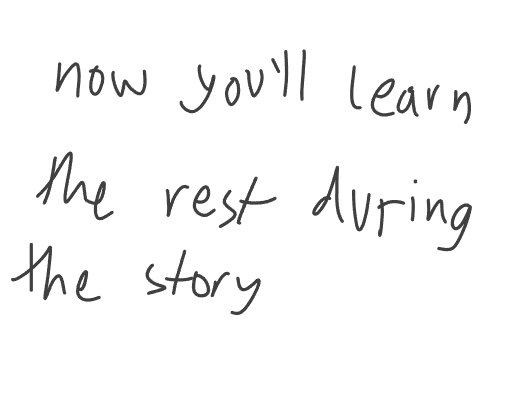 now you'll learn
the rest during
the story